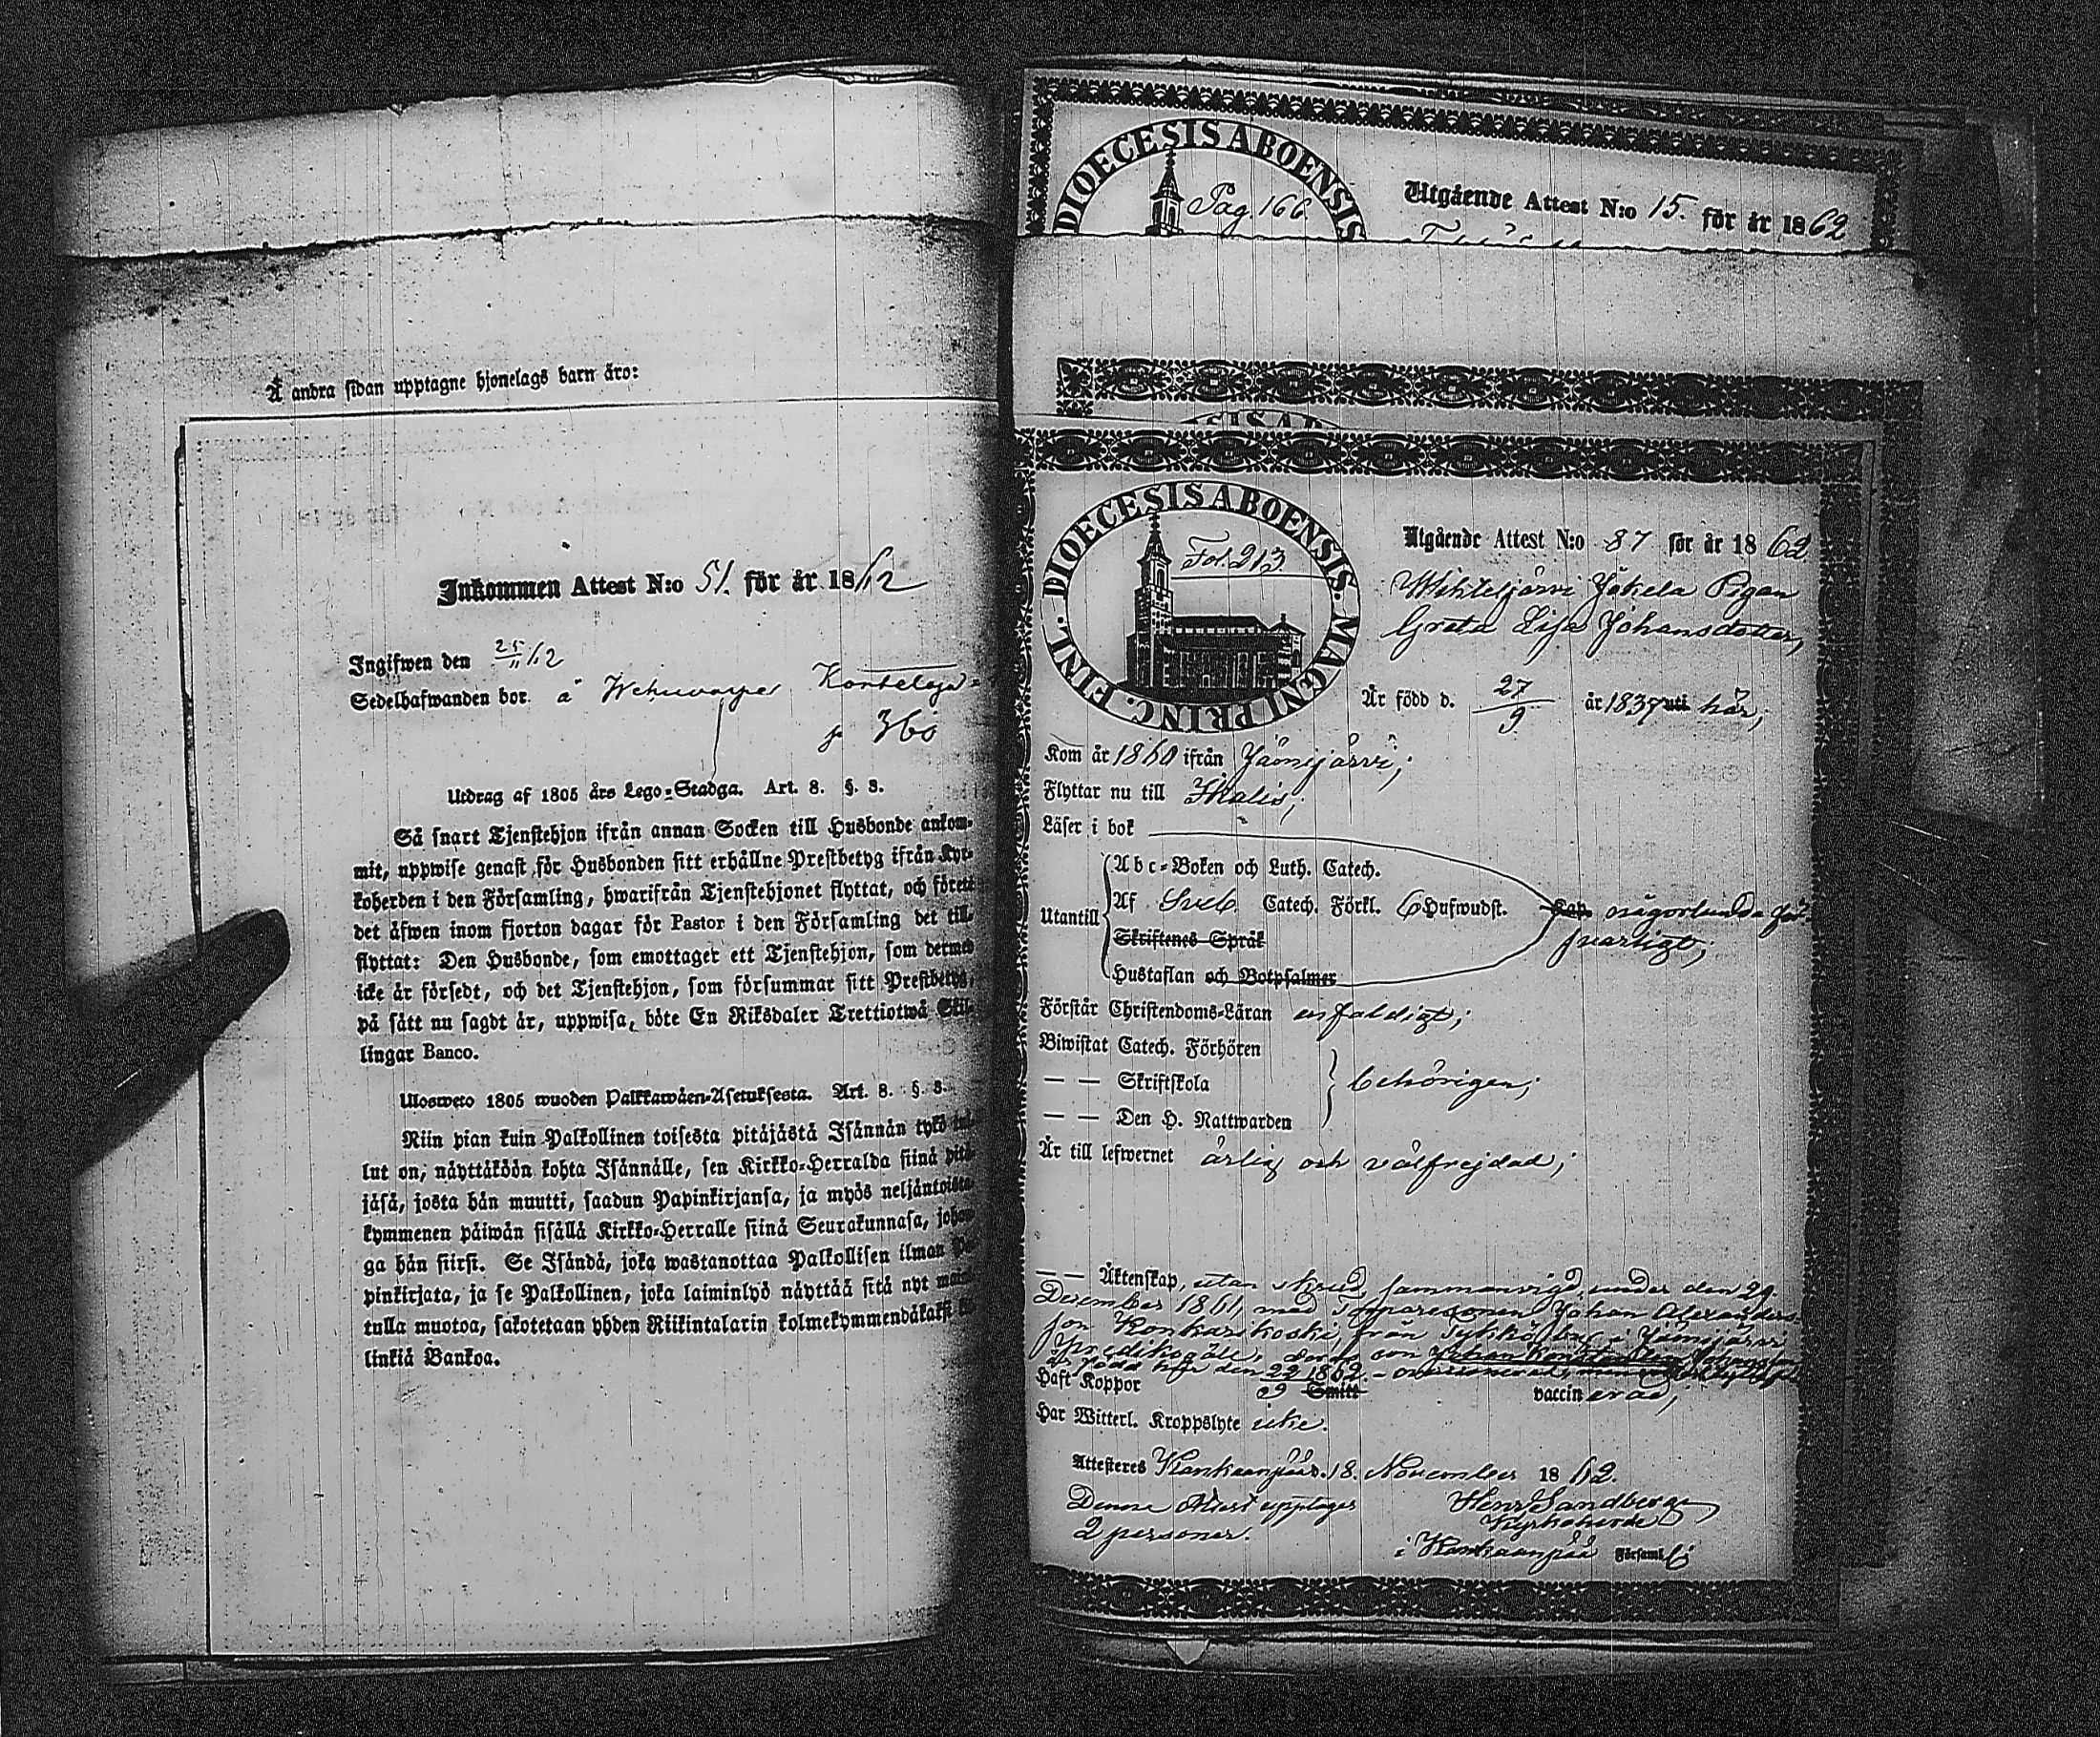 Å andra sidan upptagne hjonelags barn äro:
Inkommen Attest N:o 51. för år 1862
Ingifwen den 25/11 62
Sedelhafwanden bor å
p 360
Utdrag af 1805 års Lego-Stadga. Art. 8. §. 8.
Så snart Tjenstehjon ifrån annan Socken till Husbonde ankom-
mit, uppwise genast för Husbonden sitt erhållne Prestbetyg ifrån Kyr-
koherden i den Församling, hwarifrån Tjenstehjonet flyttat, och förete
det äfwen inom fjorton dagar för Pastor i den Församling det till-
flyttat: Den Husbonde, som emottager ett Tjenstehjon, som dermed
icke är försedt, och det Tjenstehjon, som försummar sitt Prestbetyg,
på sätt nu sagdt är, uppwisa, böte En Riksdaler Trettiotwå Skil-
lingar Banco.
Ulosweto 1805 wuoden Palkkawäen-Asetuksesta. Art. 8. §. 8.
Niin pian kuin Palkollinen toisesta pitäjästä Isännän tykö tul-
lut on, näyttäköön kohta Isännälle, sen Kirkko-Herralda siinä pitä-
jäsä, josta hän muutti, saadun Papinkirjansa, ja myös neljäntoista
kymmenen päiwän sisällä Kirkko-Herralle siinä Seurakunnasa, johon-
ga hän siirsi. Se Isändä, joka wastanottaa Palkollisen ilman Pa-
pinkirjata, ja se Palkollinen, joka laiminlyö näyttää sitä nyt
tulla muotoa, sakotetaan yhden Riikintalarin kolmekymmendäkaksi
linkiä Bankoa.
DIOECESIS ABOENSIS
Pag. 166
Utgående Attest N:o 15. för år 1862
DIOECESIS ABOENSIS. MAGNI PRINC. FINL.
Fol. 213
Utgående Attest N:o 87 för år 1862
Wihteljärvi Jåkela Pigan
Greta Lisa Johansdotter,
Är född d. 27/9 år 1839 uti här;
Kom år 1860 ifrån Jämijärvi;
Flyttar nu till Ikalis;
Läser i bok
Abc-Boken och Luth. Catech.
Utantill Af Sveb Catech. Förkl. 6 Hufwudst. Cap. någorlunda för-
svarligt;
Skriftenes Språk
Hustaflan och Botpsalmer
Förstår Christendoms-Läran enfaldigt;
Biwistat Catech. Förhören
— — Skriftskola behörigen;
— — Den H. Nattwarden
Är till lefwernet ärlig och välfrejdad;
— — Äktenskap, utan skrud, sammanvigd, under den 29.
December 1861, med Johan Alexanders-
son Konkarikoski, från Jämijärvi
den 22/9 1862.
Haft Koppor Smitt vaccinerad;
Har Witterl. Kroppslyte icke.
Attesteres Kankaanpää. 18. November 1862.
Denne Attest upptager
2 personer.
Henr Sandberg
Kyrkoherde
i Kankaanpää Församl